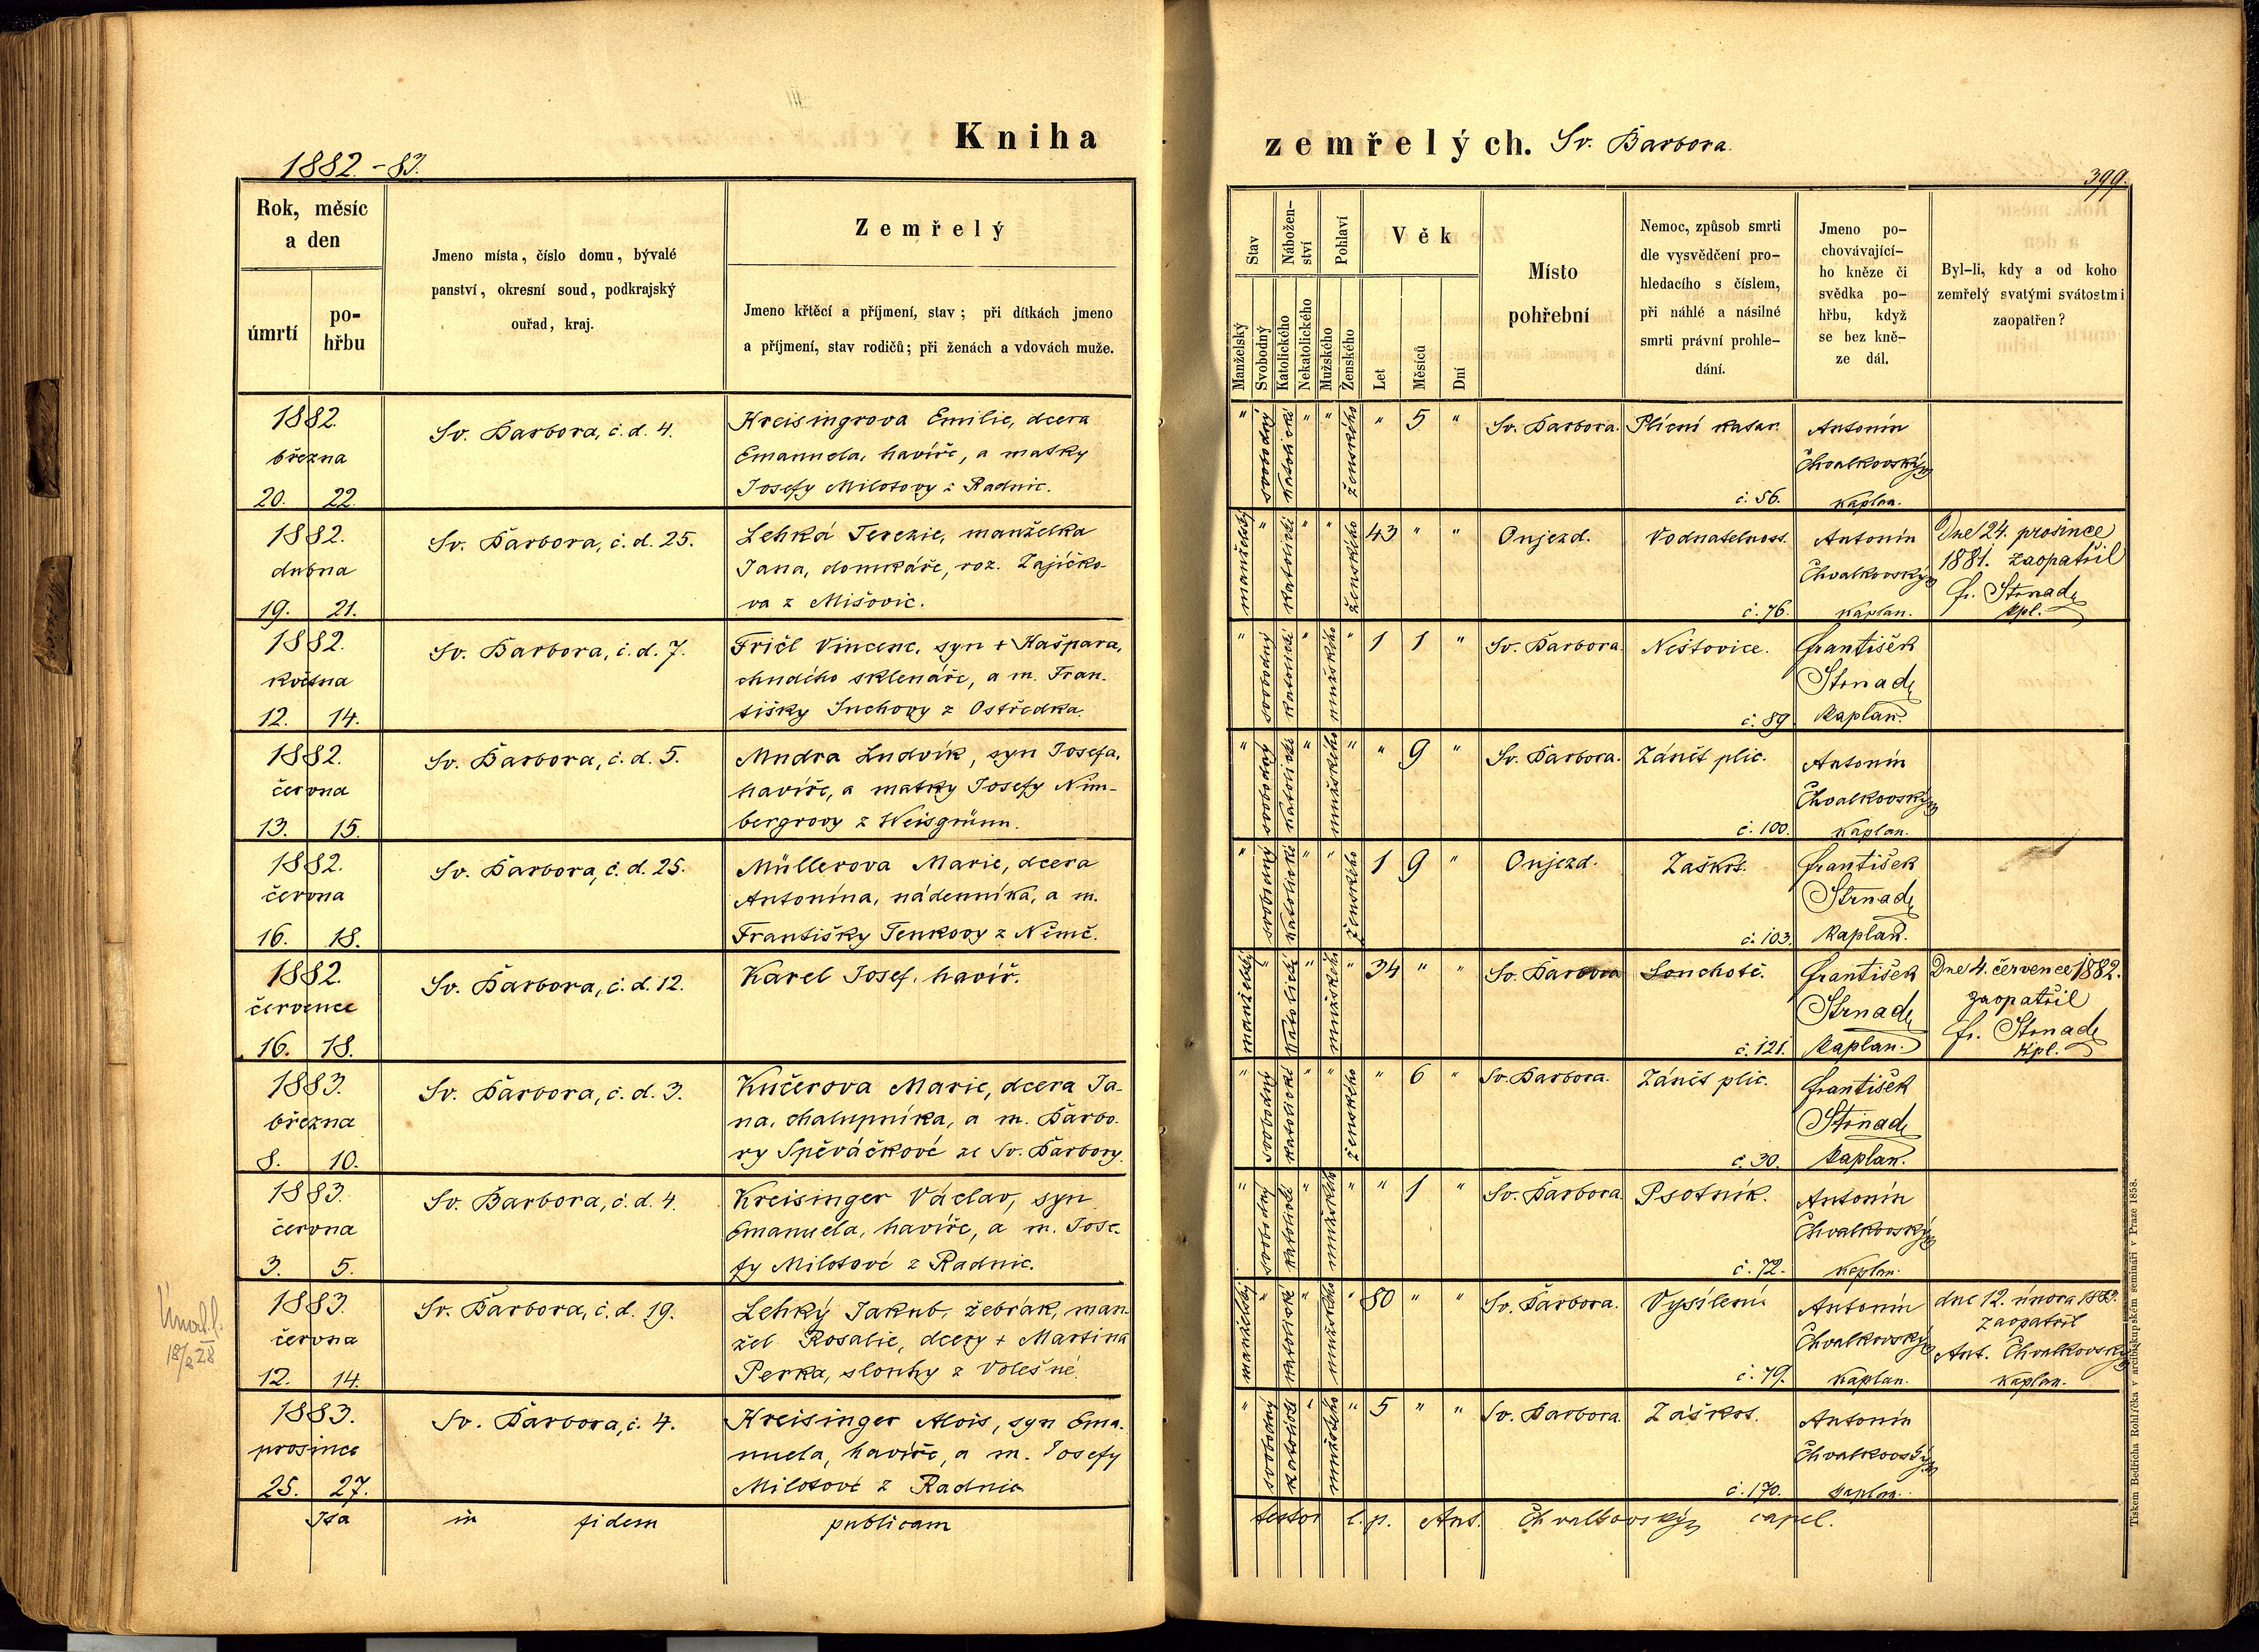 Kniha
1882.-83.
Rok, měsíc
a den
úmrtí
po-
hřbu
Jmeno místa, číslo domu, bývalé
panství, okresní soud, podkrajský
ouřad, kraj.
Zemřelý
Jmeno křtěcí a příjmení, stav; při dítkách jmeno
a příjmení, stav rodičů; při ženách a vdovách muže.
1882.
března
20. 22.
Sv. Barbora, č. d. 4.
Kreisingrova Emilie, dcera
Emanuela, havíře, a matky
Josefy Milotovy z Radnic.
1882.
dubna
19. 21.
Sv. Barbora, č. d. 25.
Lehká Terezie, manželka
Jana, domkáře, roz. Zajíčko-
va z Mišovic.
1882.
května
12. 14.
Sv. Barbora, č. d. 7.
Fričl Vincenc, syn + Kašpara,
chudého sklenáře, a m. Fran-
tišky Suchovy z Ostředka.
1882.
června
13. 15.
Sv. Barbora, č. d. 5.
Mudra Ludvík, syn Josefa,
havíře, a matky Josefy Nim-
bergrovy z Weisgrünn.
1882.
června
16. 18.
Sv. Barbora, č. d. 25.
Müllerova Marie, dcera
Antonína, nádenníka, a m.
Františky Tenkovy z Němč.
1882.
července
16. 18.
Sv. Barbora, č. d. 12.
Karel Josef, havíř.
1883.
března
8. 10.
Sv. Barbora, č. d. 3.
Kučerova Marie, dcera Ja-
na, chalupníka, a m. Barbo-
ry Spěváčkové ze Sv. Barbory.
1883.
června
3. 5.
Sv. Barbora, č. d. 4.
Kreisinger Václav, syn
Emanuela, havíře, a m. Jose-
fy Milotové z Radnic.
1883.
června
12. 14.
Sv. Barbora, č. d. 19.
Lehký Jakub, žebrák, man-
žel Rosalie, dcery + Martina
Perka, slouhy z Volešné.
18/2 28
1883.
prosince
25. 27.
Sv. Barbora, č. 4.
Kreisinger Alois, syn Ema-
nuela, havíře, a m. Josefy
Milotové z Radnic
Ita in fidem publicam
zemřelých. Sv. Barbora.
399.
Stav
Nábožen-
ství
Pohlaví
Věk
Manželský
Svobodný
Katolického
Nekatolického
Mužského
Ženského
Let
Měsíců
Dní
Místo
pohřební
Nemoc, způsob smrti
dle vysvědčení pro-
hledacího s číslem,
při náhlé a násilné
smrti právní prohle-
dání.
Jmeno po-
chovávající-
ho kněze či
svědka po-
hřbu, když
se bez kně-
ze dál.
Byl-li, kdy a od koho
zemřelý svatými svátostmi
zaopatřen?
" svobodný katolické " " ženského " 5 " Sv. Barbora. Plicní katar
č. 56.
Antonín
Chvalkovský
kaplan.
manželský " katolické " " ženského 43 " " Oujezd. Vodnatelnost.
č. 76.
Antonín
Chvalkovský
kaplan.
Dne 24. prosince
1881. zaopatřil
fr. Strnad
kpl.
" svobodný katolické " mužského " 1 1 " Sv. Barbora. Neštovice.
č. 89
František
Strnad
kaplan.
" svobodný katolické " mužského " " 9 " Sv. Barbora. Zánět plic.
č. 100.
Antonín
Chvalkovský
kaplan.
" svobodný katolické " " ženského 1 9 " Oujezd. Záškrt.
č. 103.
František
Strnad
kaplan.
manželský " katolické " mužského " 34 " " Sv. Barbora Souchotě.
č. 121.
František
Strnad
kaplan.
Dne 4. července 1882.
zaopatřil
fr. Strnad
kpl.
" svobodný katolické " " ženského " 6 " Sv. Barbora. Zánět plic.
č. 30.
František
Strnad
kaplan.
" svobodný katolické " mužského " " 1 " Sv. Barbora Psotník.
č. 72.
Antonín
Chvalkovský
kaplan.
manželský " katolické " mužského " 80 " " Sv. Barbora. Vysílení
č. 79.
Antonín
Chvalkovský
kaplan.
dne 12. února 1883.
zaopatřil
Ant. Chvalkovský
kaplan.
" svobodný katolické " mužského " 5 " " Sv. Barbora. Záškrt.
č. 170.
Antonín
Chvalkovský
kaplan.
testor l. p. Ant. Chvalkovský capel.
Tiskem Bedřicha Rohlíčka v arcibiskupském semináři v Praze 1858.